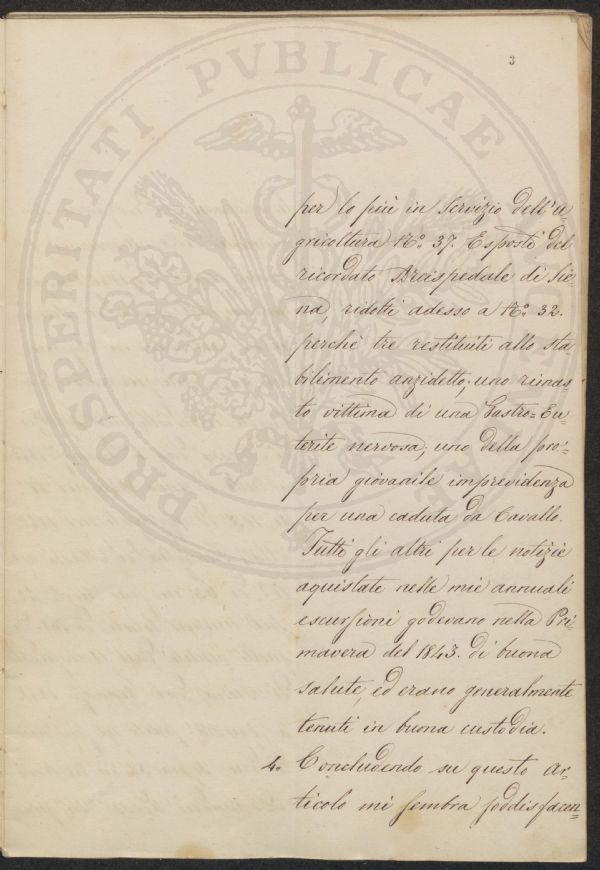 3
PROSPERITATI PVBLICAE
per lo più in Servizio dell'a=
gricoltura N.º 37. Esposti del
ricordato Arcispedale di Sie=
na, ridotti adesso a N.º 32.
perchè tre restituiti allo sta=
bilimento anzidetto; uno rimas=
to vittima di una Gastro=En=
terite nervosa; uno della pro=
pria giovanile imprevidenza
per una caduta da Cavallo.
Tutti gli altri per le notizie
aquistate nelle mie annuali
escursioni godevano nella Pri=
mavera del 1843. di buona
salute, ed erano generalmente
tenuti in buona custodia.
4. Concludendo su questo ar=
ticolo mi sembra soddisfacen=